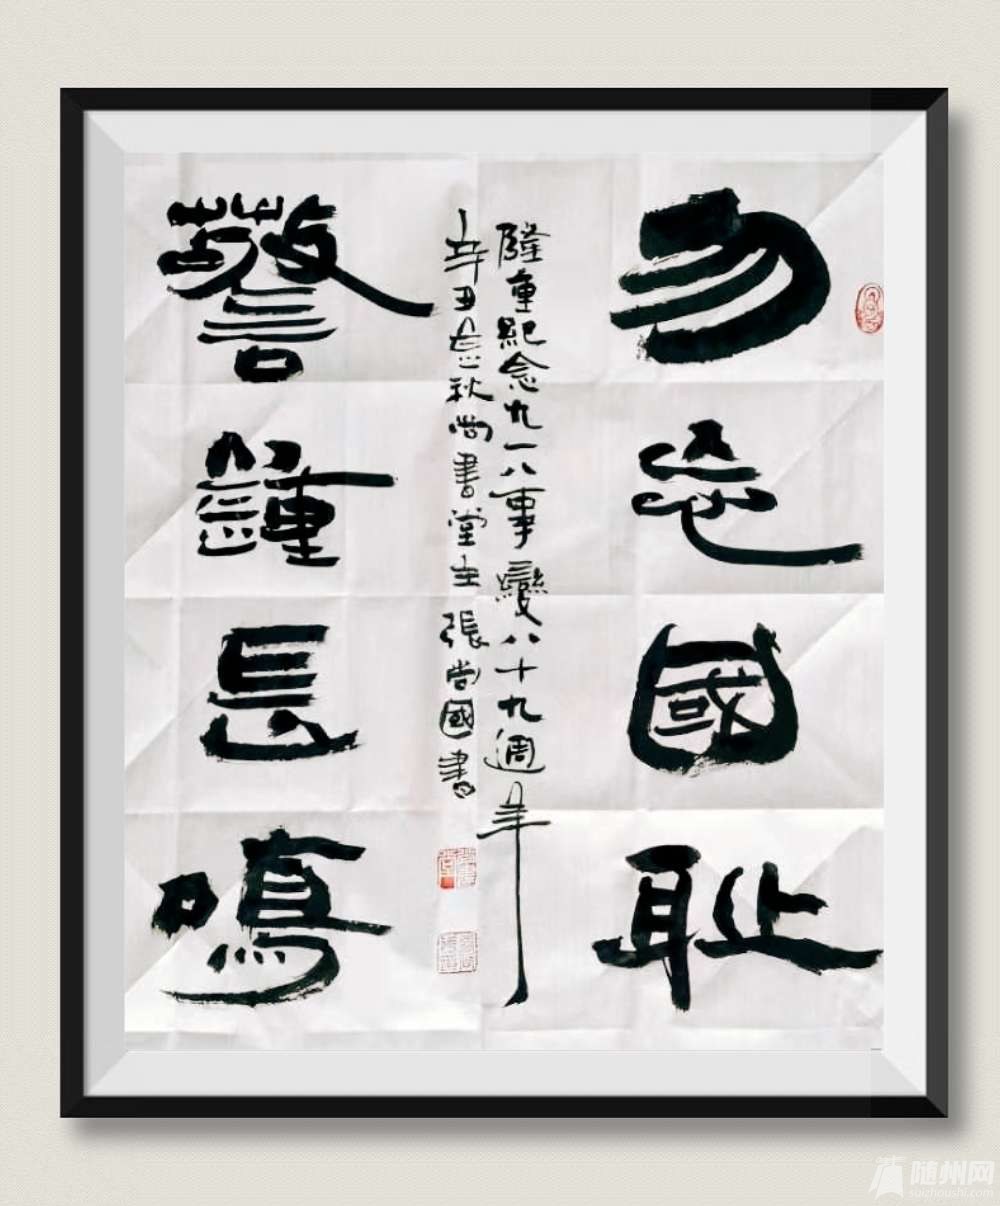 勿忘國耻
隆重紀念九一八事變八十九週年
辛丑秋尚書堂主張尚國書
警鍾長鳴
随州网
suizhoushi.com